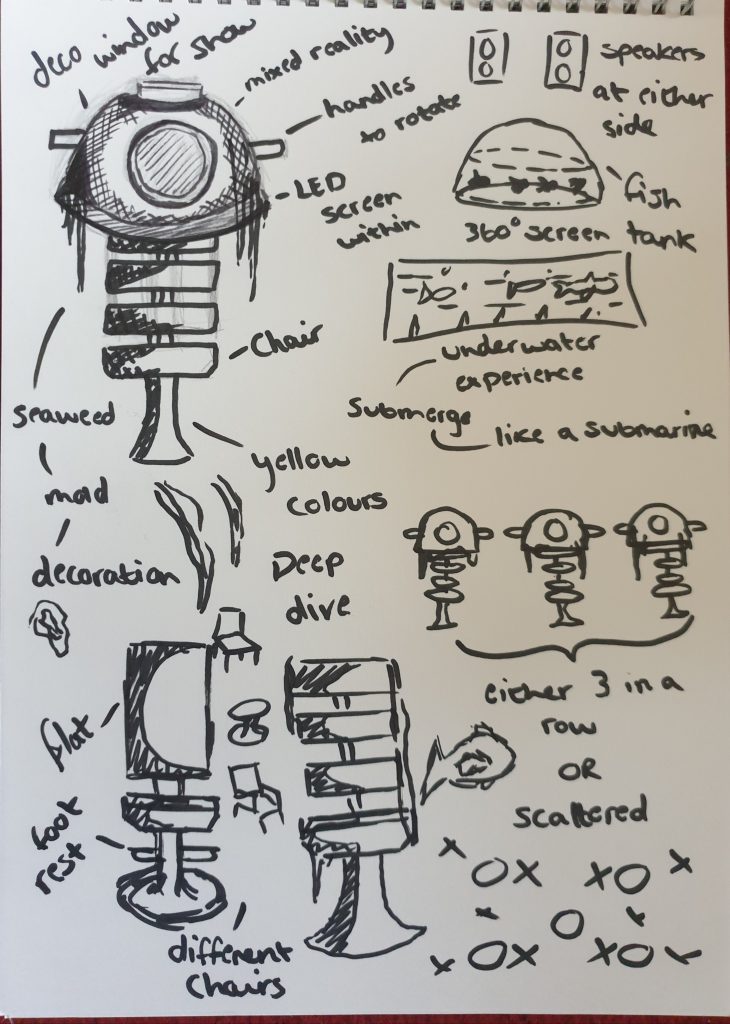 deco window
for show
mixed reality
handles
to rotate
LED
screen
within
Chair
seaweed
mold
decoration
yellow
colours
Deep
dive
speakers
at either
side
fish
tank
360° screen
underwater
experience
submerge
like a submarine
either 3 in a
row
OR
scattered
flat
foot
rest
different
chairs